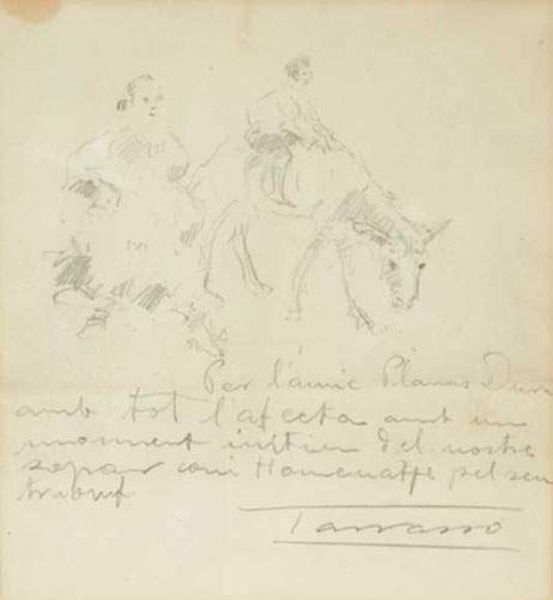 Per l'amic Planas Dur
amb tot l'afecta amb un
moment intim del nostre
sopar com Homenatje pel seu
triomf
Tarrassó